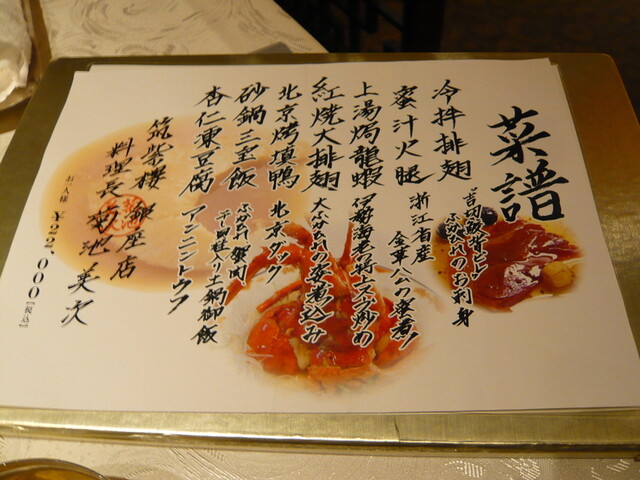 菜譜
冷拌排翅
ふかひれのお刺身
蜜汁火腿
浙江省産
金華ハムの蜜煮
上湯焗龍蝦
伊勢海老の特上スープ炒め
紅焼大排翅
大ふかひれの姿煮込み
北京烤填鴨
北京ダック
砂鍋三宝飯
ふかひれ、蟹肉、
干貝柱入り土鍋御飯
杏仁凍豆腐
アンニンドウフ
筑紫樓 銀座店
料理長 菊池 英次
お一人様 ¥22,000【税込】